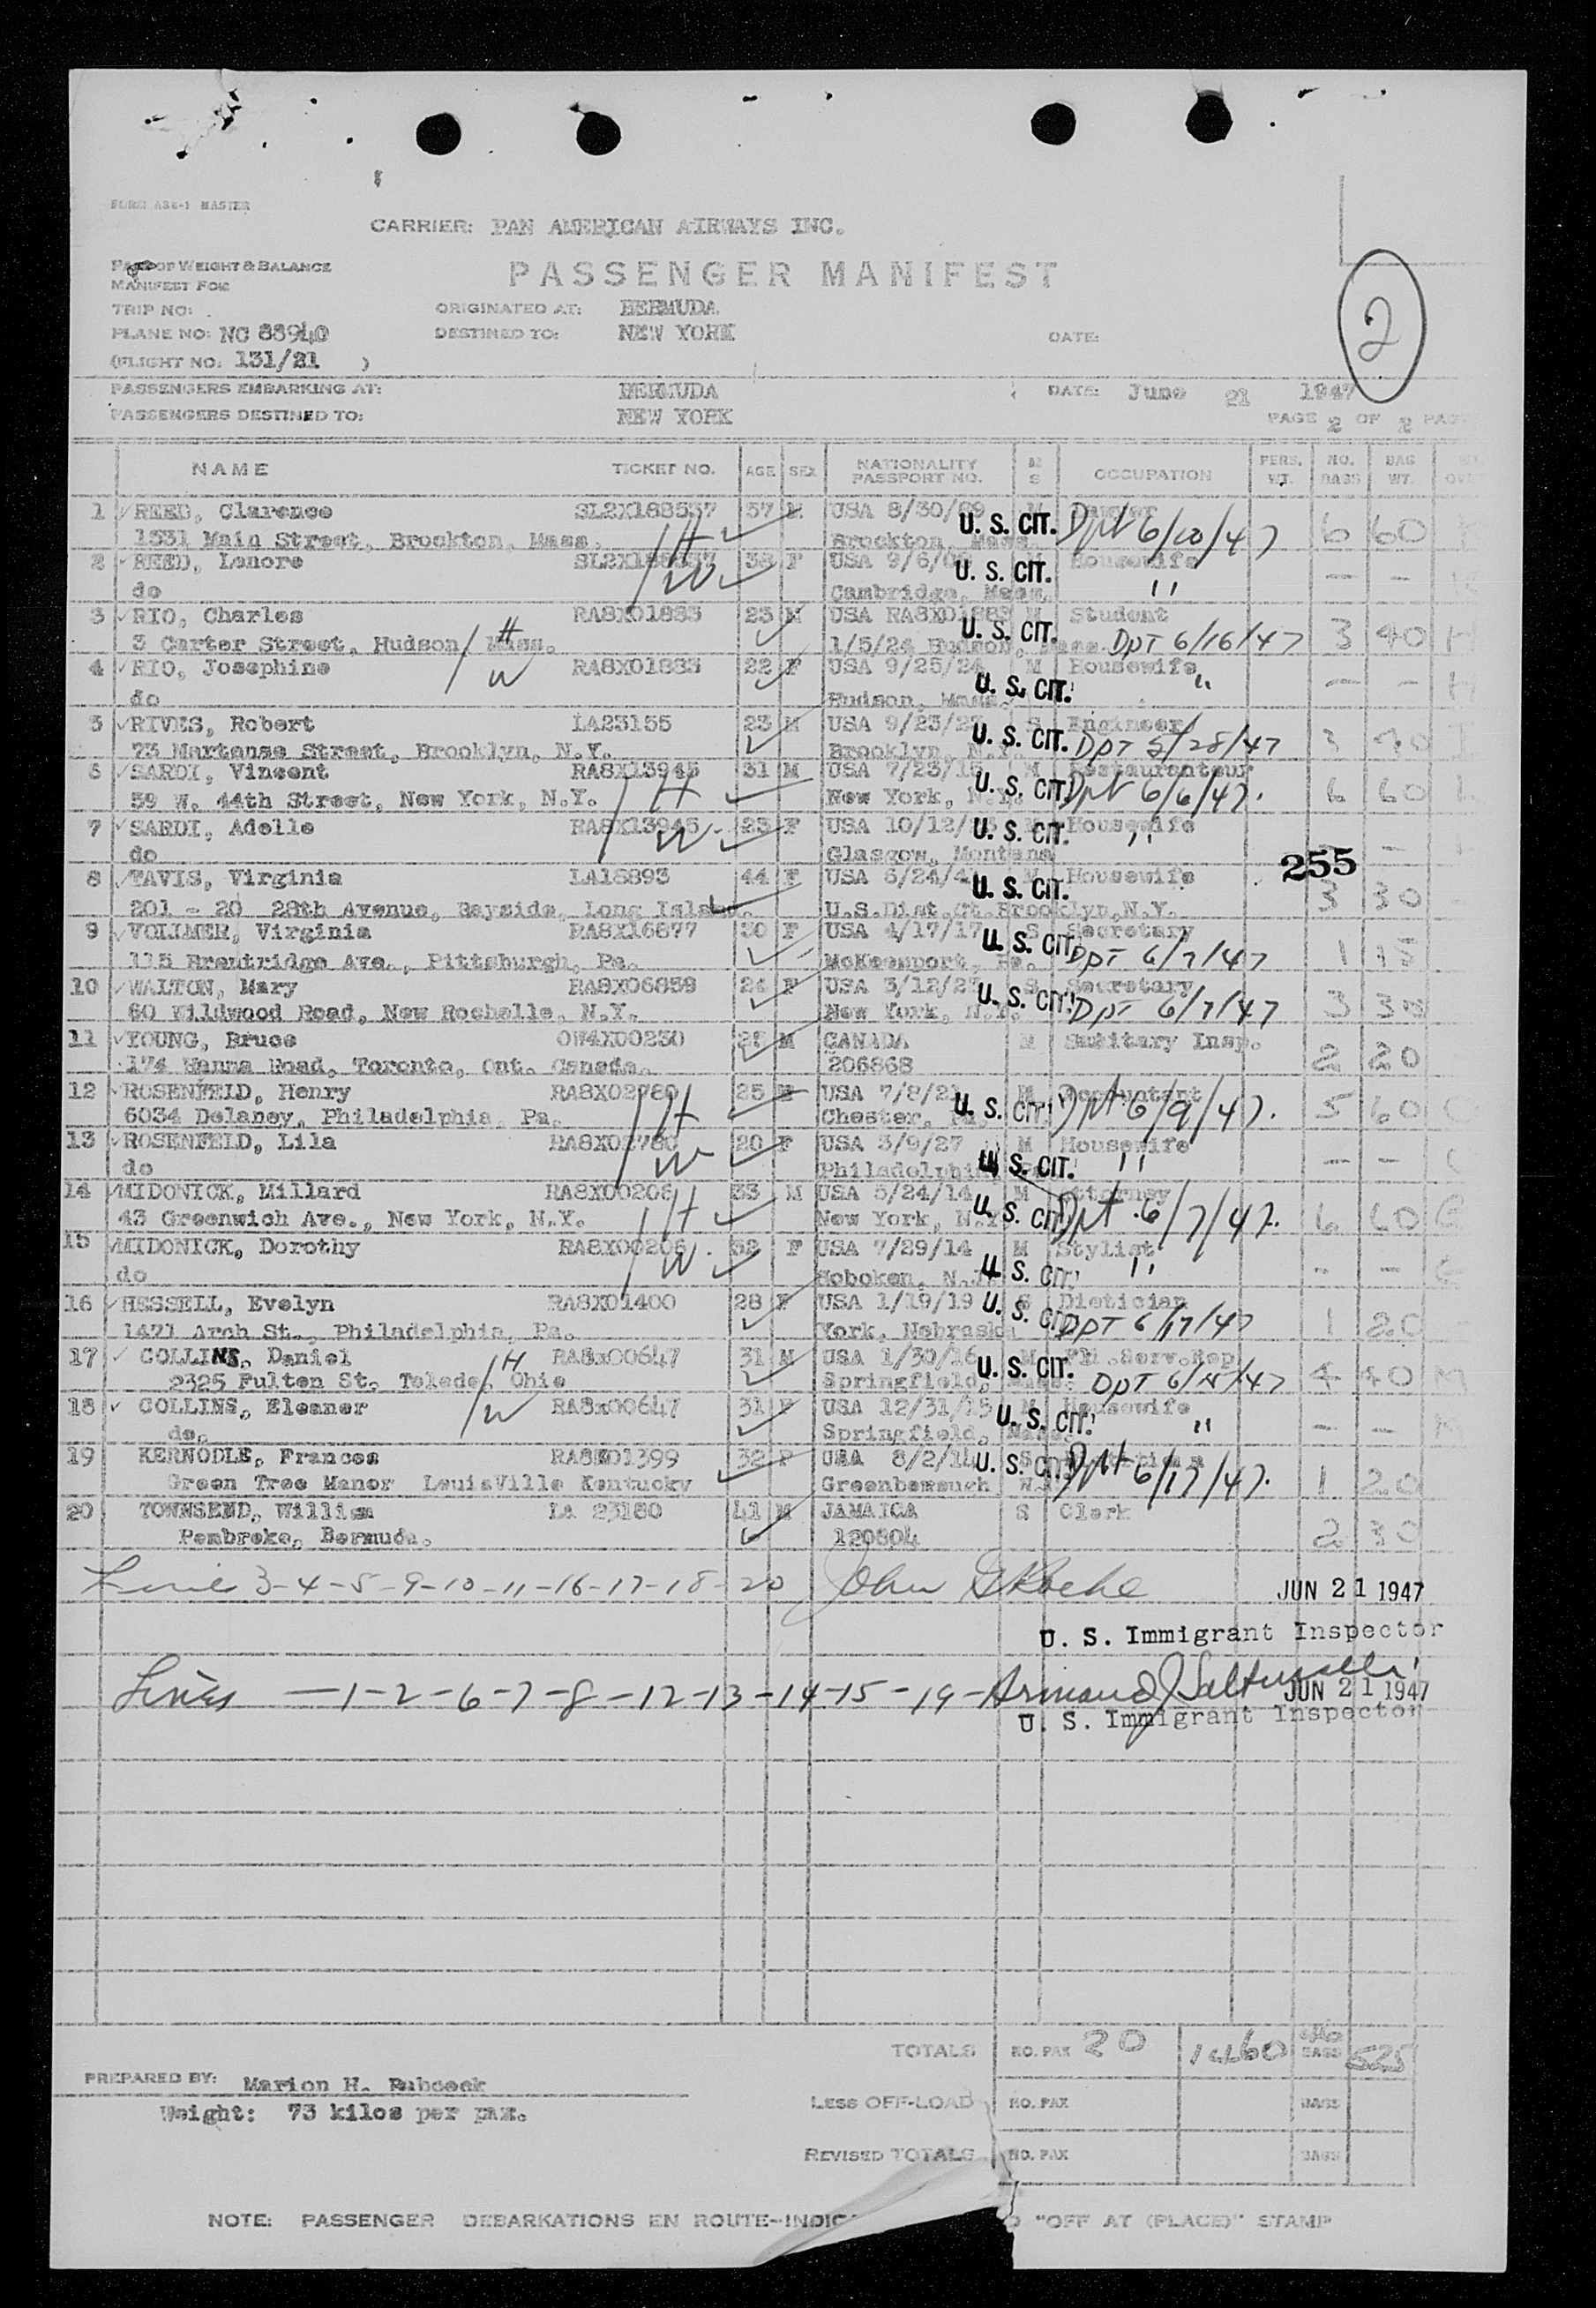 FORM A34-1 MASTER
CARRIER: PAN AMERICAN AIRWAYS INC.
PASSENGER MANIFEST
PART OF WEIGHT & BALANCE
MANIFEST FOR
TRIP NO:
ORIGINATED AT: BERMUDA
PLANE NO: NC 88940 DESTINED TO: NEW YORK DATE:
(FLIGHT NO: 131/21 )
2
PASSENGERS EMBARKING AT: BERMUDA DATE: June 21 1947
PASSENGERS DESTINED TO: NEW YORK
PAGE 2 OF 2
NAME TICKET NO. AGE SEX NATIONALITY PASSPORT NO. M S OCCUPATION PERS. WT. NO. BAGS BAG WT.
1 REED, Clarence SL2X188537 37 M USA 8/30/09 U. S. CIT. 6/10/47 6 60
1331 Main Street, Brockton, Mass. H Brockton, Mass.
2 REED, Lenore 38 F USA U. S. CIT. Housewife " - -
do W Cambridge, Mass.
3 RIO, Charles RA8X01883 23 M USA RA8X01883 M Student 3 40 H
3 Carter Street, Hudson, Mass. H 1/5/24 Hudson, Mass. U. S. CIT. DPT 6/16/47
4 RIO, Josephine RA8X01883 22 F USA 9/25/24 M Housewife " - - H
do W Hudson, Mass. U. S. CIT.
5 RIVES, Robert LA23155 23 M USA 9/23/23 S Engineer 3 40
73 Martense Street, Brooklyn, N.Y. Brooklyn, N.Y. U. S. CIT. DPT 5/28/47
6 SARDI, Vincent RA8X13945 31 M USA 7/23/15 M Restauranteur 6 60
39 W. 44th Street, New York, N.Y. H New York, N.Y. U. S. CIT. 6/6/47.
7 SARDI, Adelle RA8X13945 23 F USA 10/12/ U. S. CIT. Housewife " -
do W Glasgow, Montana
255
8 TAVIS, Virginia LA18893 44 F USA 6/24/4 M Housewife 3 30
201 - 20 28th Avenue, Bayside, Long Island. U.S.Dist.Ct.Brooklyn,N.Y. U. S. CIT.
9 VOLLMER, Virginia RA8X16877 30 F USA 4/17/17 S Secretary 1 15
115 Brentridge Ave., Pittsburgh, Pa. McKeesport, Pa. U. S. CIT. DPT 6/7/47
10 WALTON, Mary RA8X06859 24 F USA 3/12/23 S Secretary 3
60 Wildwood Road, New Rochelle, N.Y. New York, N.Y. U. S. CIT. DPT 6/7/47
11 YOUNG, Bruce OW4X00230 28 M CANADA M Sanitary Insp. 2 20
174 Hanna Road, Toronto, Ont. Canada. 206868
12 ROSENFELD, Henry RA8X02780 25 M USA 7/8/21 M Accountant 5 60
6034 Delancy, Philadelphia, Pa. H Chester, Pa. U. S. CIT. 6/9/47.
13 ROSENFELD, Lila RA8X02780 20 F USA 3/9/27 M Housewife - -
do W Philadelphia U. S. CIT. "
14 MIDONICK, Millard RA8X00206 33 M USA 5/24/14 M Attorney 6 60
43 Greenwich Ave., New York, N.Y. H New York, N.Y. U. S. CIT. 6/7/47.
15 MIDONICK, Dorothy RA8X00206 32 F USA 7/29/14 M Stylist - -
do W Hoboken, N.J. U. S. CIT. "
16 HESSELL, Evelyn RA8X01400 28 F USA 1/19/19 S Dietician 1 20
1421 Arch St., Philadelphia, Pa. York, Nebraska U. S. CIT. DPT 6/17/47
17 COLLINS, Daniel RA8x00647 31 M USA 1/30/16 M Serv.Rep 4 40 M
2325 Fulton St. Toledo, Ohio H Springfield, Mass. U. S. CIT. DPT 6/15/47
18 COLLINS, Eleanor RA8x00647 31 F USA 12/31/15 M Housewife - - M
do. W Springfield, Mass. U. S. CIT. "
19 KERNODLE, Frances RA8X01399 32 F USA 8/2/14 S U. S. CIT. 1 20
Green Tree Manor LouisVille Kentucky Greenborough 6/17/47.
20 TOWNSEND, William LA 23180 41 M JAMAICA S Clerk 2 30
Pembroke, Bermuda. 120804
Line 3-4-5-9-10-11-16-17-18-20 John JUN 21 1947
U. S. Immigrant Inspector
Lines -1-2-6-7-8-12-13-14-15-19- Armand J. JUN 21 1947
U. S. Immigrant Inspector
TOTALS NO. PAX 20 1460 BAGS 525
PREPARED BY: Marion H. Babcock
Weight: 73 kilos per pax.
LESS OFF-LOAD NO. PAX BAGS
REVISED TOTALS NO. PAX BAGS
NOTE: PASSENGER DEBARKATIONS EN ROUTE "OFF AT (PLACE)" STAMP